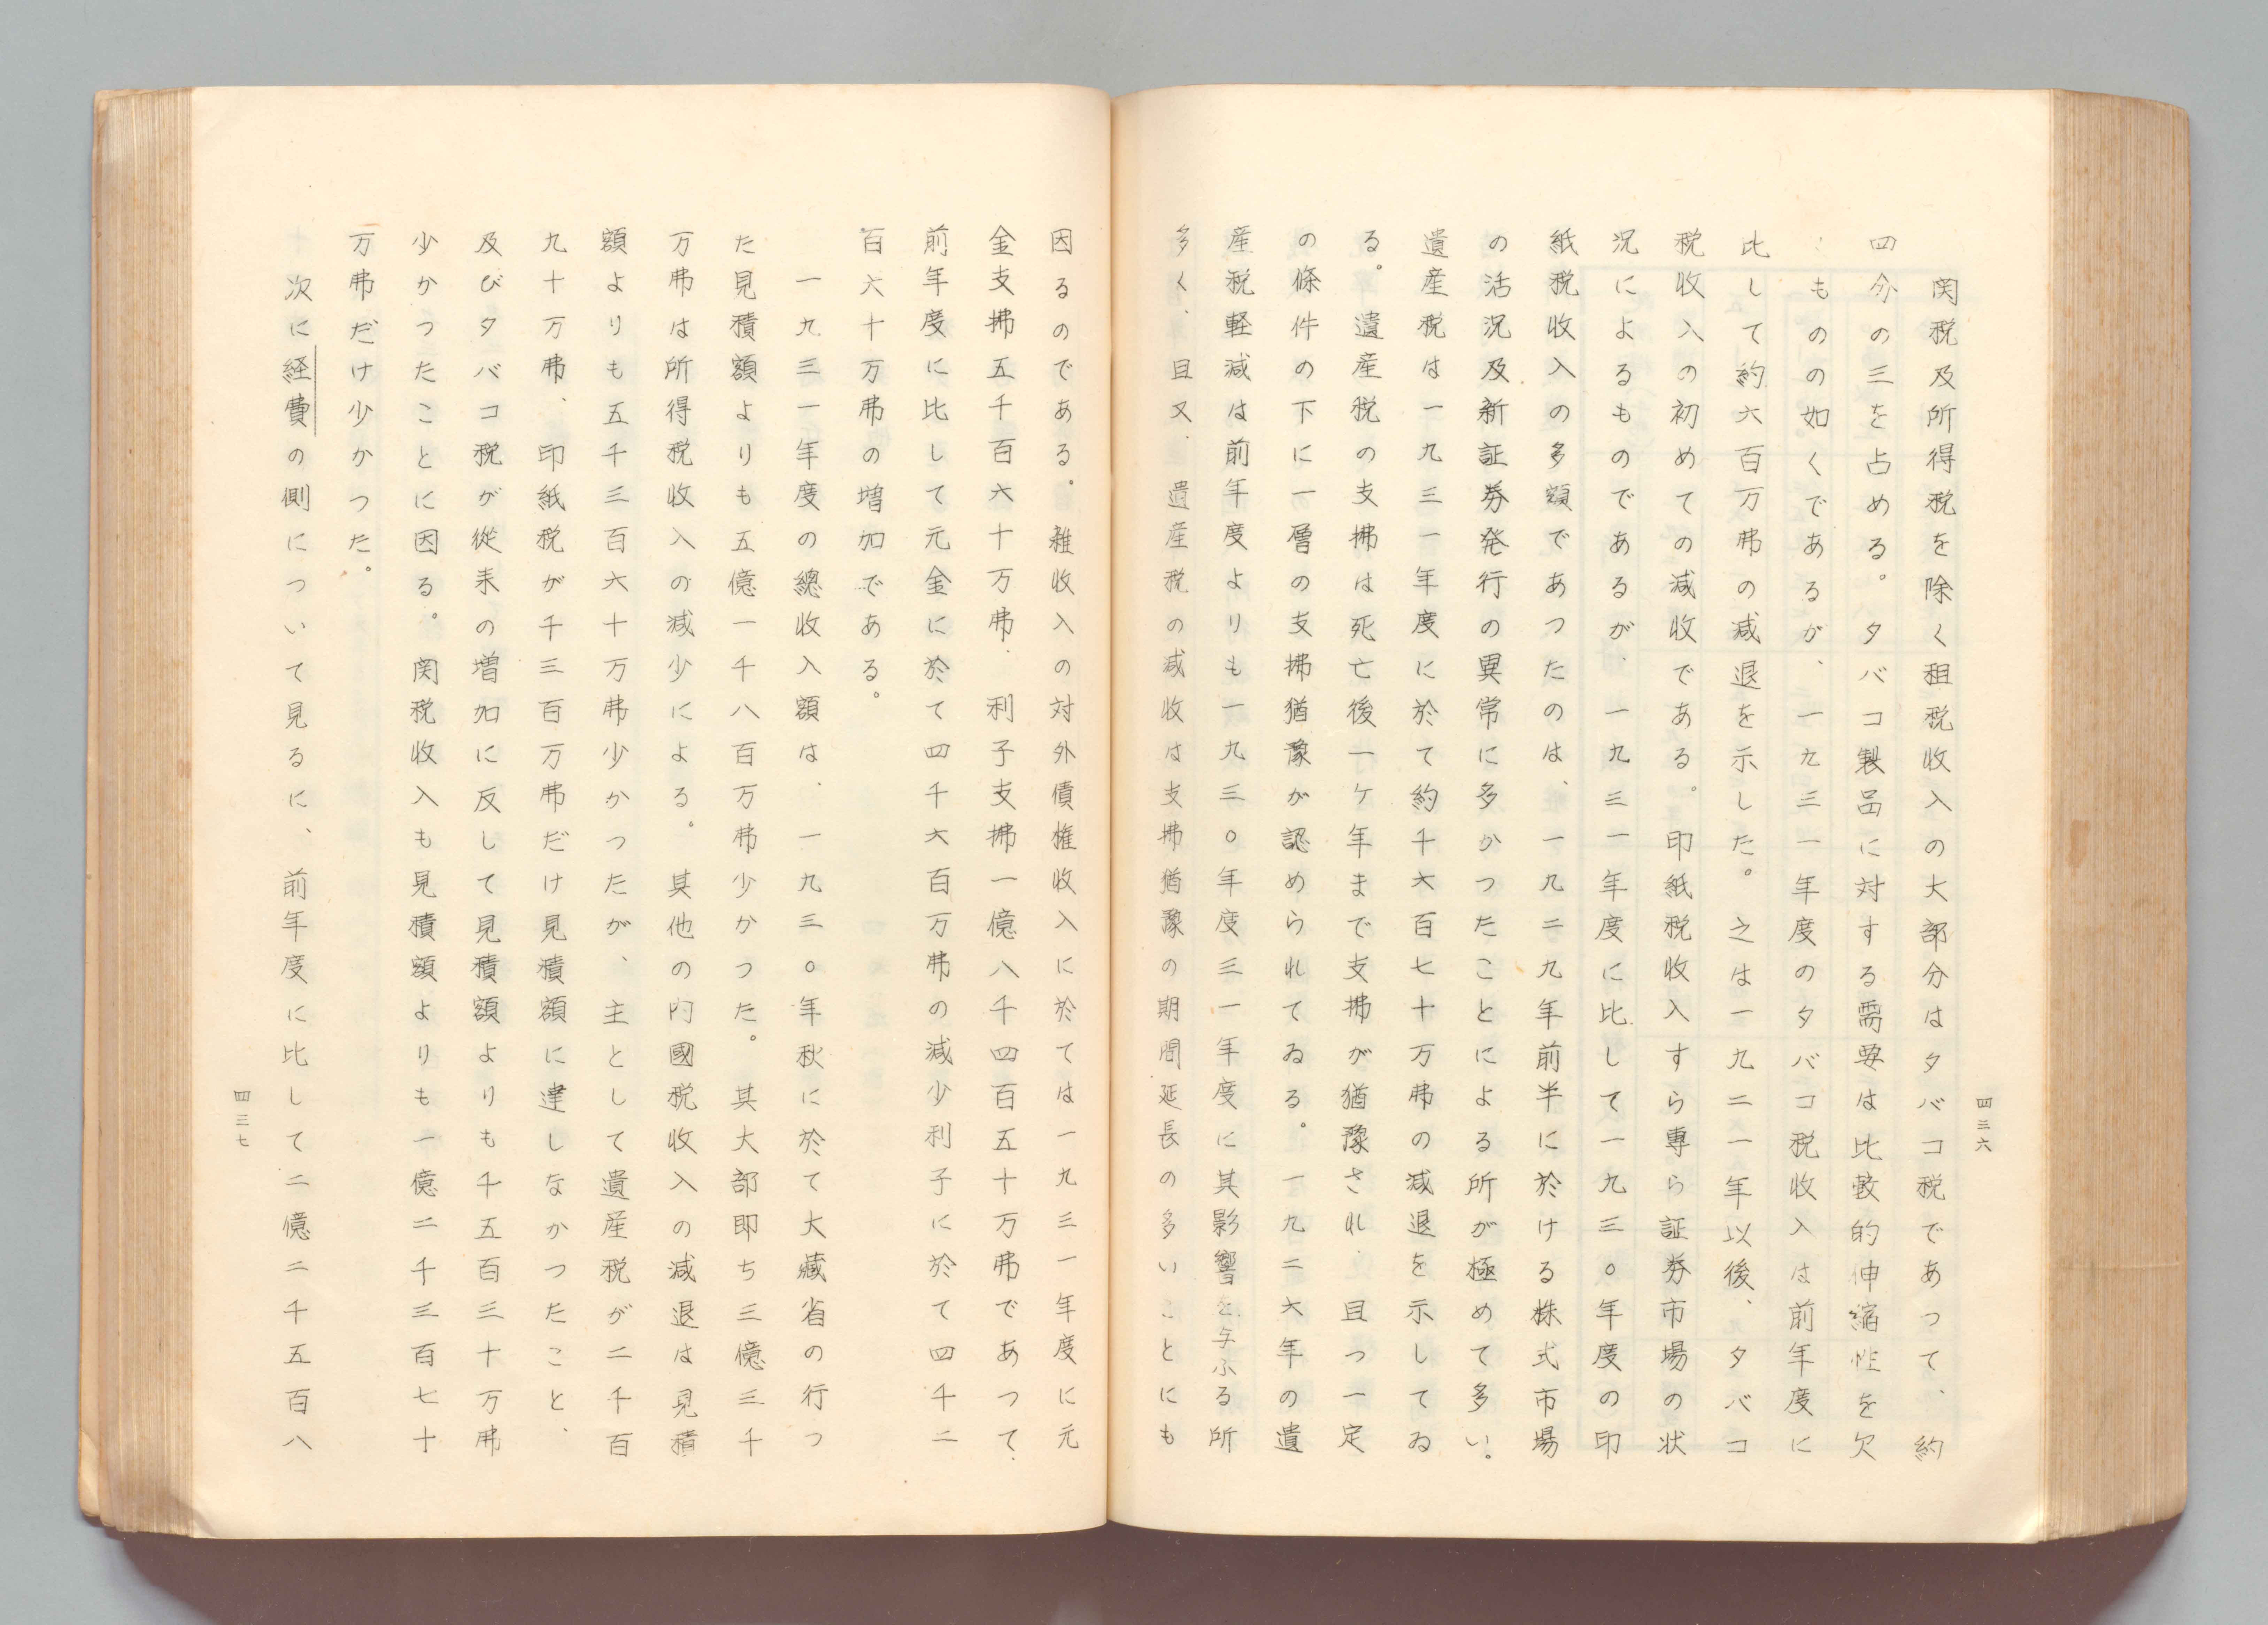 四三六
関税及所得税を除く租税收入の大部分はタバコ税であつて、約
四分の三を占める。タバコ製品に対する需要は比較的伸縮性を欠
くものの如くであるが、一九三一年度のタバコ税收入は前年度に
比して約六百万弗の減退を示した。之は一九二一年以後、タバコ
税收入の初めての減收である。印紙税收入すら専ら証券市場の状
況によるものであるが、一九三一年度に比して一九三〇年度の印
紙税收入の多額であつたのは、一九二九年前半に於ける株式市場
の活況及新証券発行の異常に多かつたことによる所が極めて多い。
遺産税は一九三一年度に於て約千六百七十万弗の減退を示してゐ
る。遺産税の支拂は死亡後一ケ年まで支拂が猶豫され、且つ一定
の條件の下に一層の支拂猶豫が認められてゐる。一九二六年の遺
産税軽減は前年度よりも一九三〇年度三一年度に其影響を与ふる所
多く、且又、遺産税の減收は支拂猶豫の期間延長の多いことにも
因るのである。雑收入の対外債権收入に於ては一九三一年度に元
金支拂五千百六十万弗、利子支拂一億八千四百五十万弗であつて、
前年度に比して元金に於て四千六百万弗の減少利子に於て四千二
百六十万弗の増加である。
一九三一年度の總收入額は、一九三〇年秋に於て大藏省の行つ
た見積額よりも五億一千八百万弗少かつた。其大部即ち三億三千
万弗は所得税收入の減少による。其他の内國税收入の減退は見積
額よりも五千三百六十万弗少かつたが、主として遺産税が二千百
九十万弗、印紙税が千三百万弗だけ見積額に達しなかつたこと、
及びタバコ税が從来の増加に反して見積額よりも千五百三十万弗
少かつたことに因る。関税收入も見積額よりも一億二千三百七十
万弗だけ少かつた。
次に経費の側について見るに、前年度に比して二億二千五百八
四三七